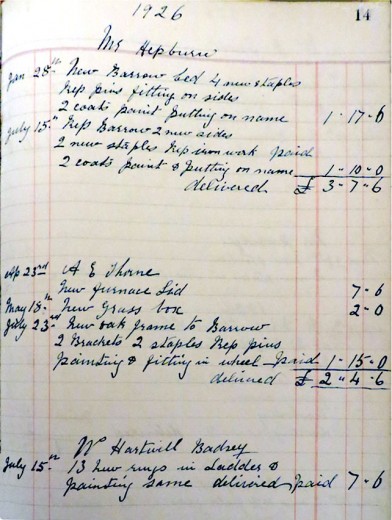 1926
14
Mr Hepburn
Jan 28th New Barrow bed 4 new staples
Rep pins fitting on sides
2 coats paint putting on name 1-17-6
July 15th Rep Barrow 2 new sides
2 new staples Rep iron work paid
2 coats paint & putting on name 1-10-0
delivered £ 3-7-6
Ap 23rd A E Thorne
New furnace Lid 7-6
May 18th New Grass box 2-0
July 23rd New oak frame to Barrow
2 Brackets 2 staples Rep pins
painting & fitting in wheel paid 1-15-0
delivered £ 2-4-6
W Hartwell Badsey
July 15th 13 New rungs in Ladder &
painting same delivered paid 7-6